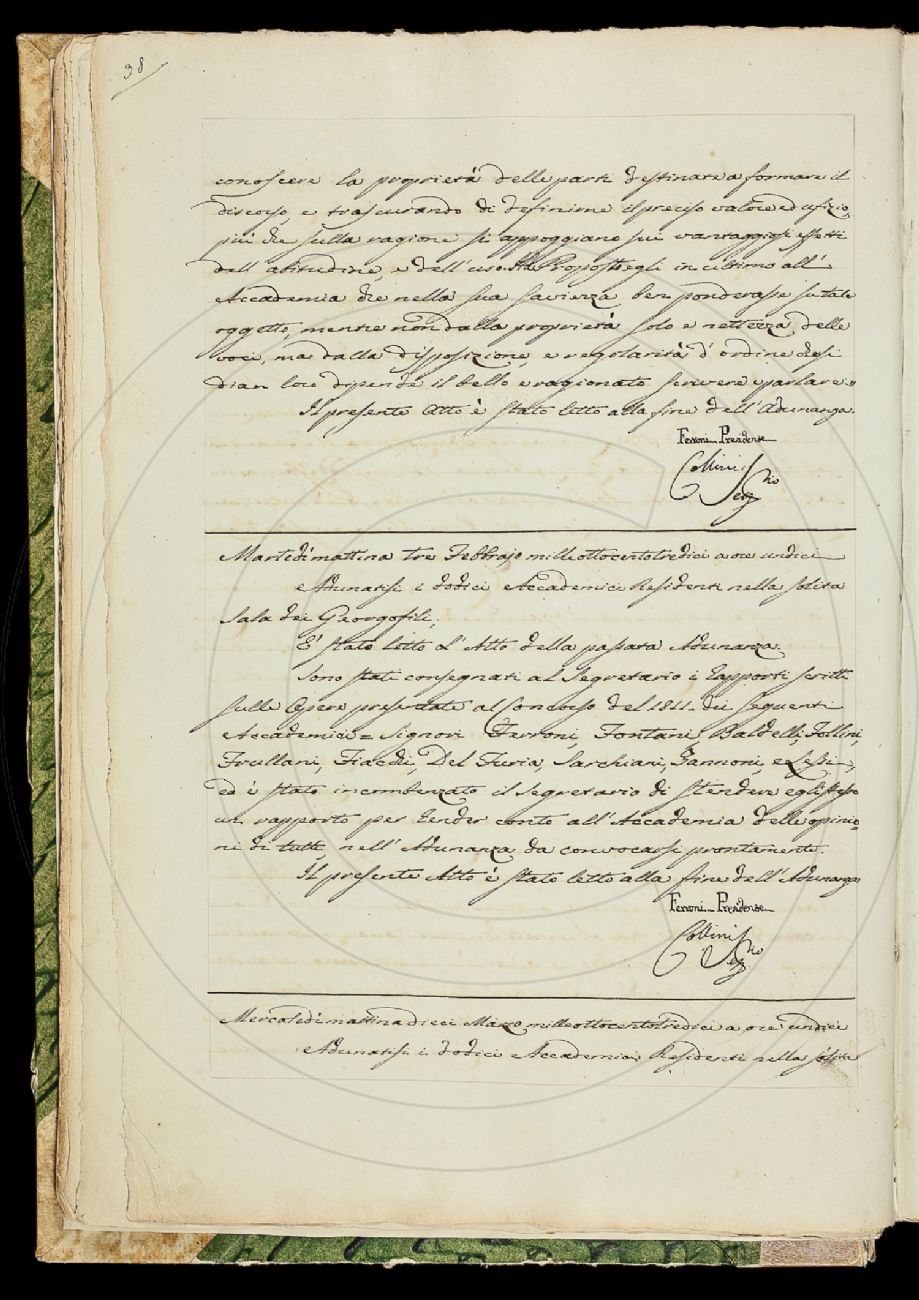 38
conoscere la proprietà delle parti destinate a formare il
discorso, e trascurando di definirne il preciso valore ed ufizio,
più che sulla ragione si appoggiano sui vantaggiosi effetti
dell'abitudine, e dell'uso. Propose egli in ultimo all'
Accademia che nella sua saviezza ben ponderasse su tale
oggetto, mentre non dalla proprietà solo e nettezza delle
voci, ma dalla disposizione, e regolarità d'ordine che si
dia loro dipende il bello e ragionato scrivere e parlare.
Il presente Atto è stato letto alla fine dell'Adunanza.
Ferroni Presidente
Collini Seg.rio
Martedì mattina tre Febbrajo milleottocentotredici a ore undici
Adunatisi i dodici Accademici Residenti nella solita
Sala dei Georgofili,
È stato letto l'Atto della passata Adunanza.
Sono stati consegnati al Segretario i Rapporti scritti
sulle Opere presentate al Concorso del 1811. dei seguenti
Accademici = Signori Ferroni, Fontani, Baldelli, Follini,
Frullani, Fiacchi, Del Furia, Sarchiani, Zannoni, e Lessi,
ed è stato incombenzato il Segretario di stendere egli stesso
un rapporto per render conto all'Accademia delle opinio=
ni di tutti, nell'Adunanza da convocarsi prontamente.
Il presente Atto è stato letto alla fine dell'Adunanza
Ferroni Presidente
Collini Seg.rio
Mercoledì mattina dieci Marzo milleottocentotredici a ore undici
Adunatisi i dodici Accademici Residenti nella solita